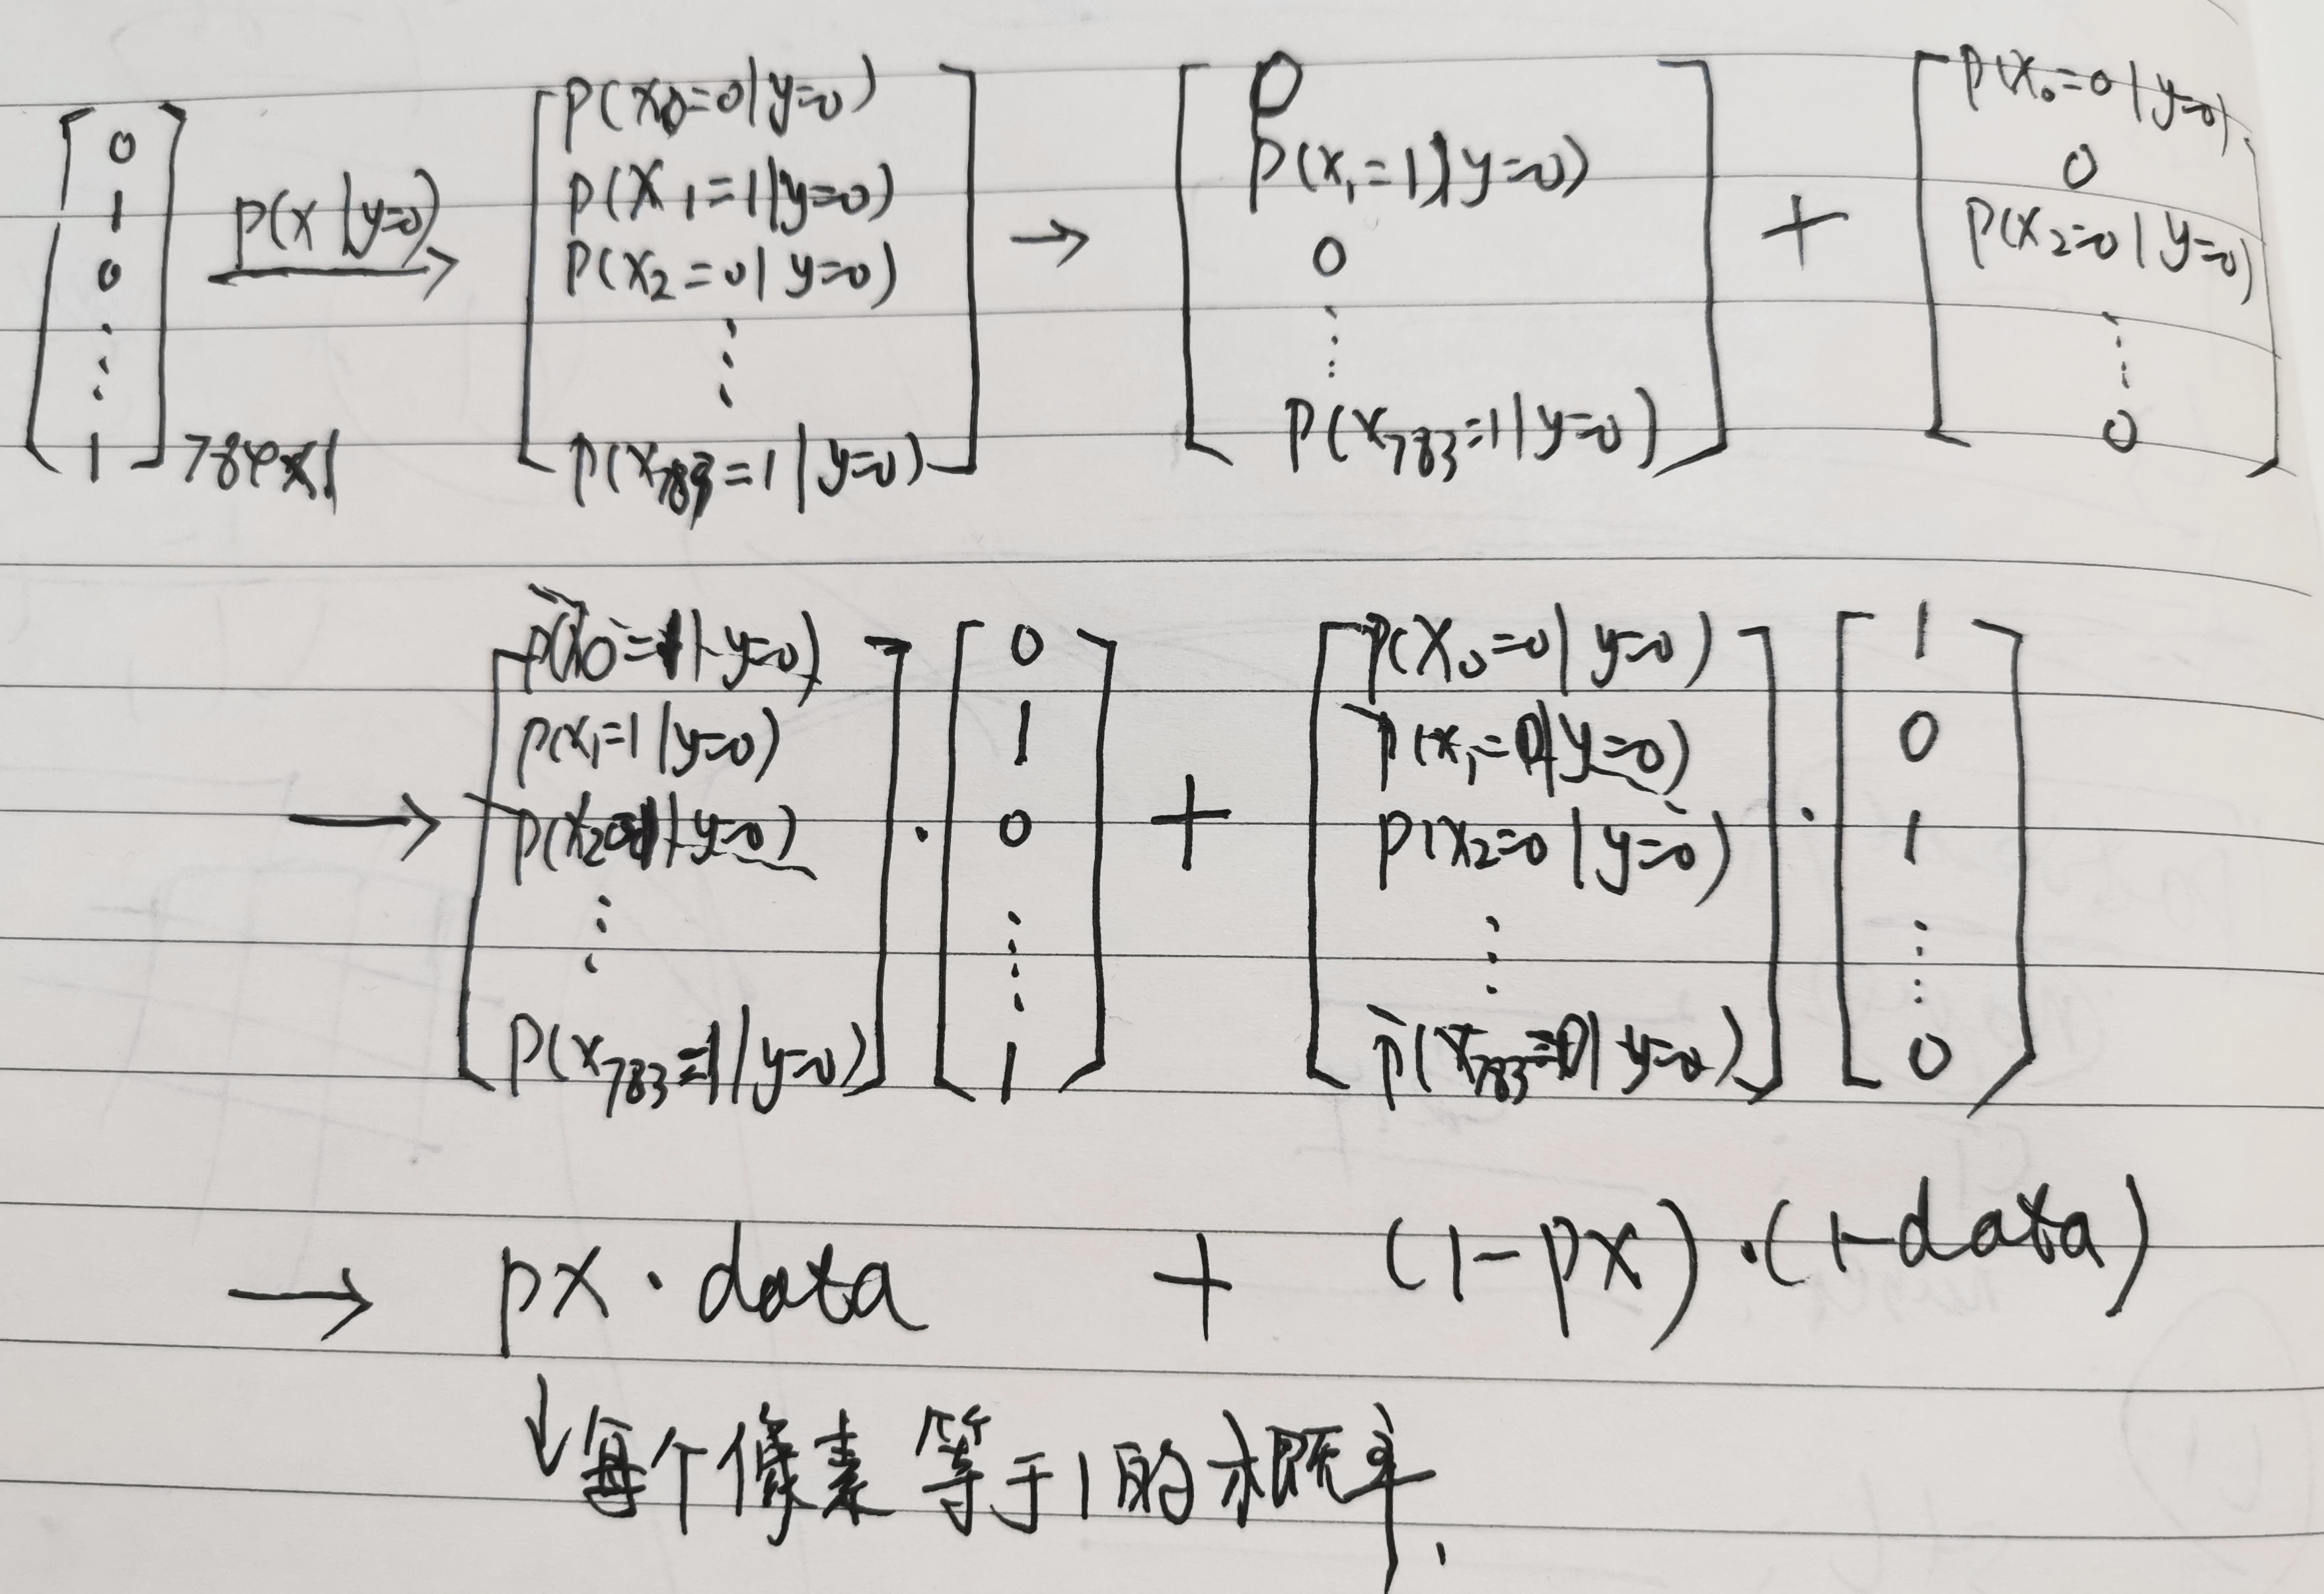 [0 1 0 ⋮ 1]784×1 P(x|y=0) → [P(x0=0|y=0) P(x1=1|y=0) P(x2=0|y=0) ⋮ P(x783=1|y=0)] → [0 P(x1=1|y=0) 0 ⋮ P(x783=1|y=0)] + [P(x0=0|y=0) 0 P(x2=0|y=0) ⋮ 0]
→ [P(x0=1|y=0) P(x1=1|y=0) P(x2=1|y=0) ⋮ P(x783=1|y=0)] · [0 1 0 ⋮ 1] + [P(x0=0|y=0) P(x1=0|y=0) P(x2=0|y=0) ⋮ P(x783=0|y=0)] · [1 0 1 ⋮ 0]
→ px · data + (1-px) · (1-data)
↓ 每个像素等于1的概率.